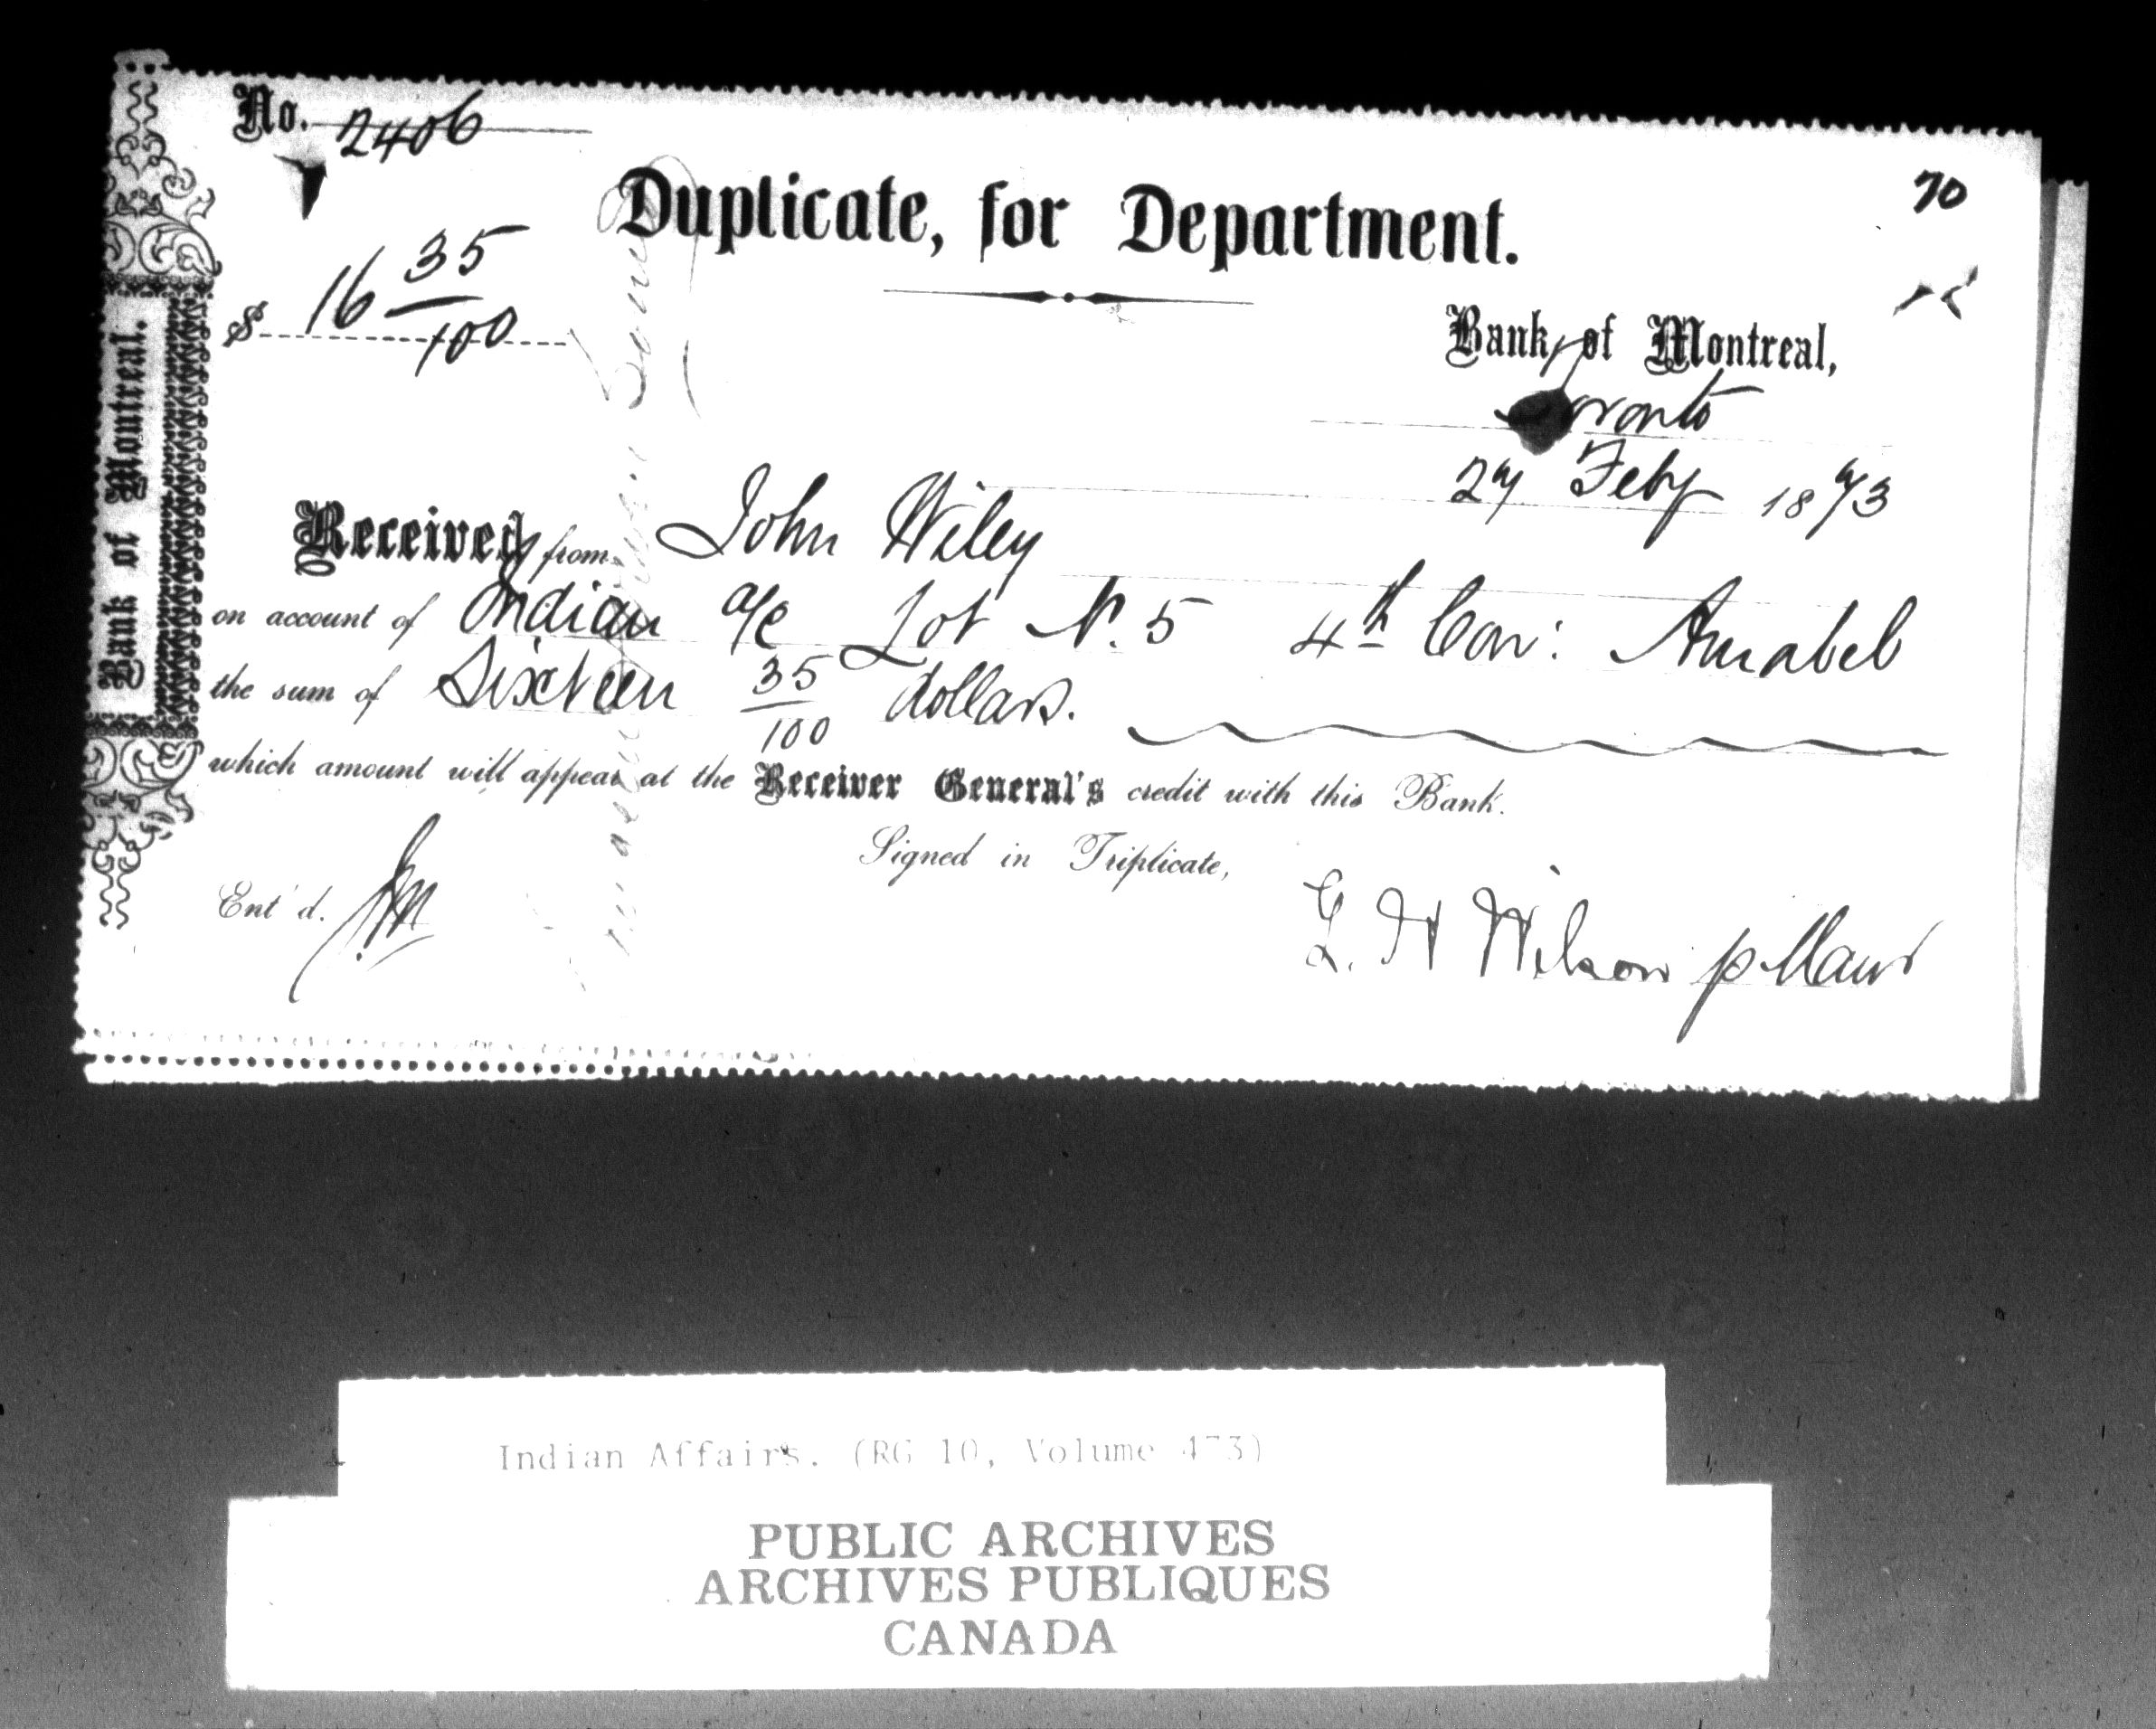 No. 2406
70
Duplicate, for Department.
$ 16 35/100
Bank of Montreal,
Toronto
27 Feby 1873
Received from John Wiley
on account of Indian a/c Lot N. 5 4th Con: Amabel
the sum of Sixteen 35/100 dollars.
which amount will appear at the Receiver General's credit with this Bank.
Signed in Triplicate,
Ent'd.
G. H Wilson p Man
Bank of Montreal.
Indian Affairs. (RG 10, Volume 473)
PUBLIC ARCHIVES
ARCHIVES PUBLIQUES
CANADA